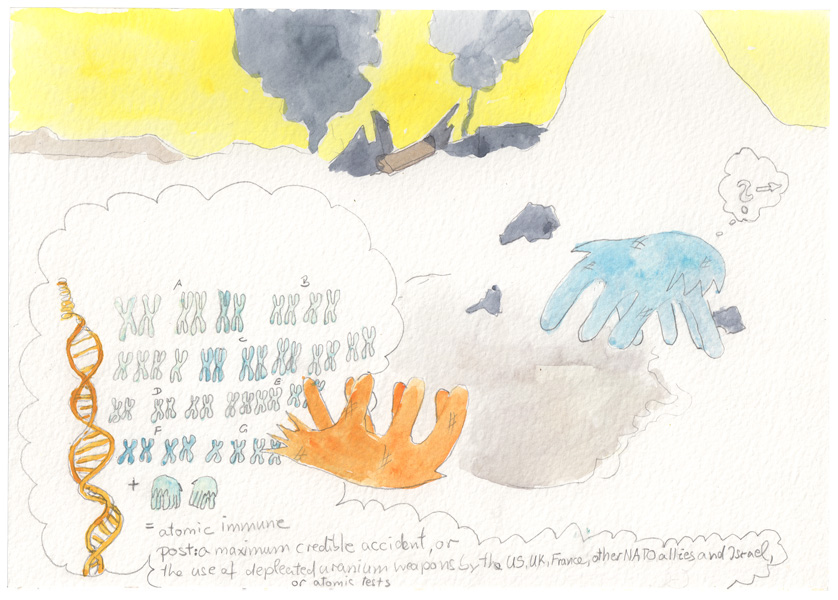 ?
A B
C
D E
F G
+
= atomic immune
post: a maximum credible accident, or
the use of depleted uranium weapons by the US, UK, France, other NATO allies and Israel,
or atomic tests